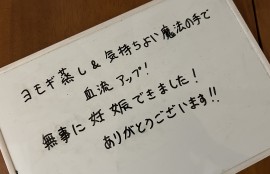 ヨモギ蒸し & 気持ちよい魔法の手で
血流アップ!
無事に妊娠できました!
ありがとうございます!!